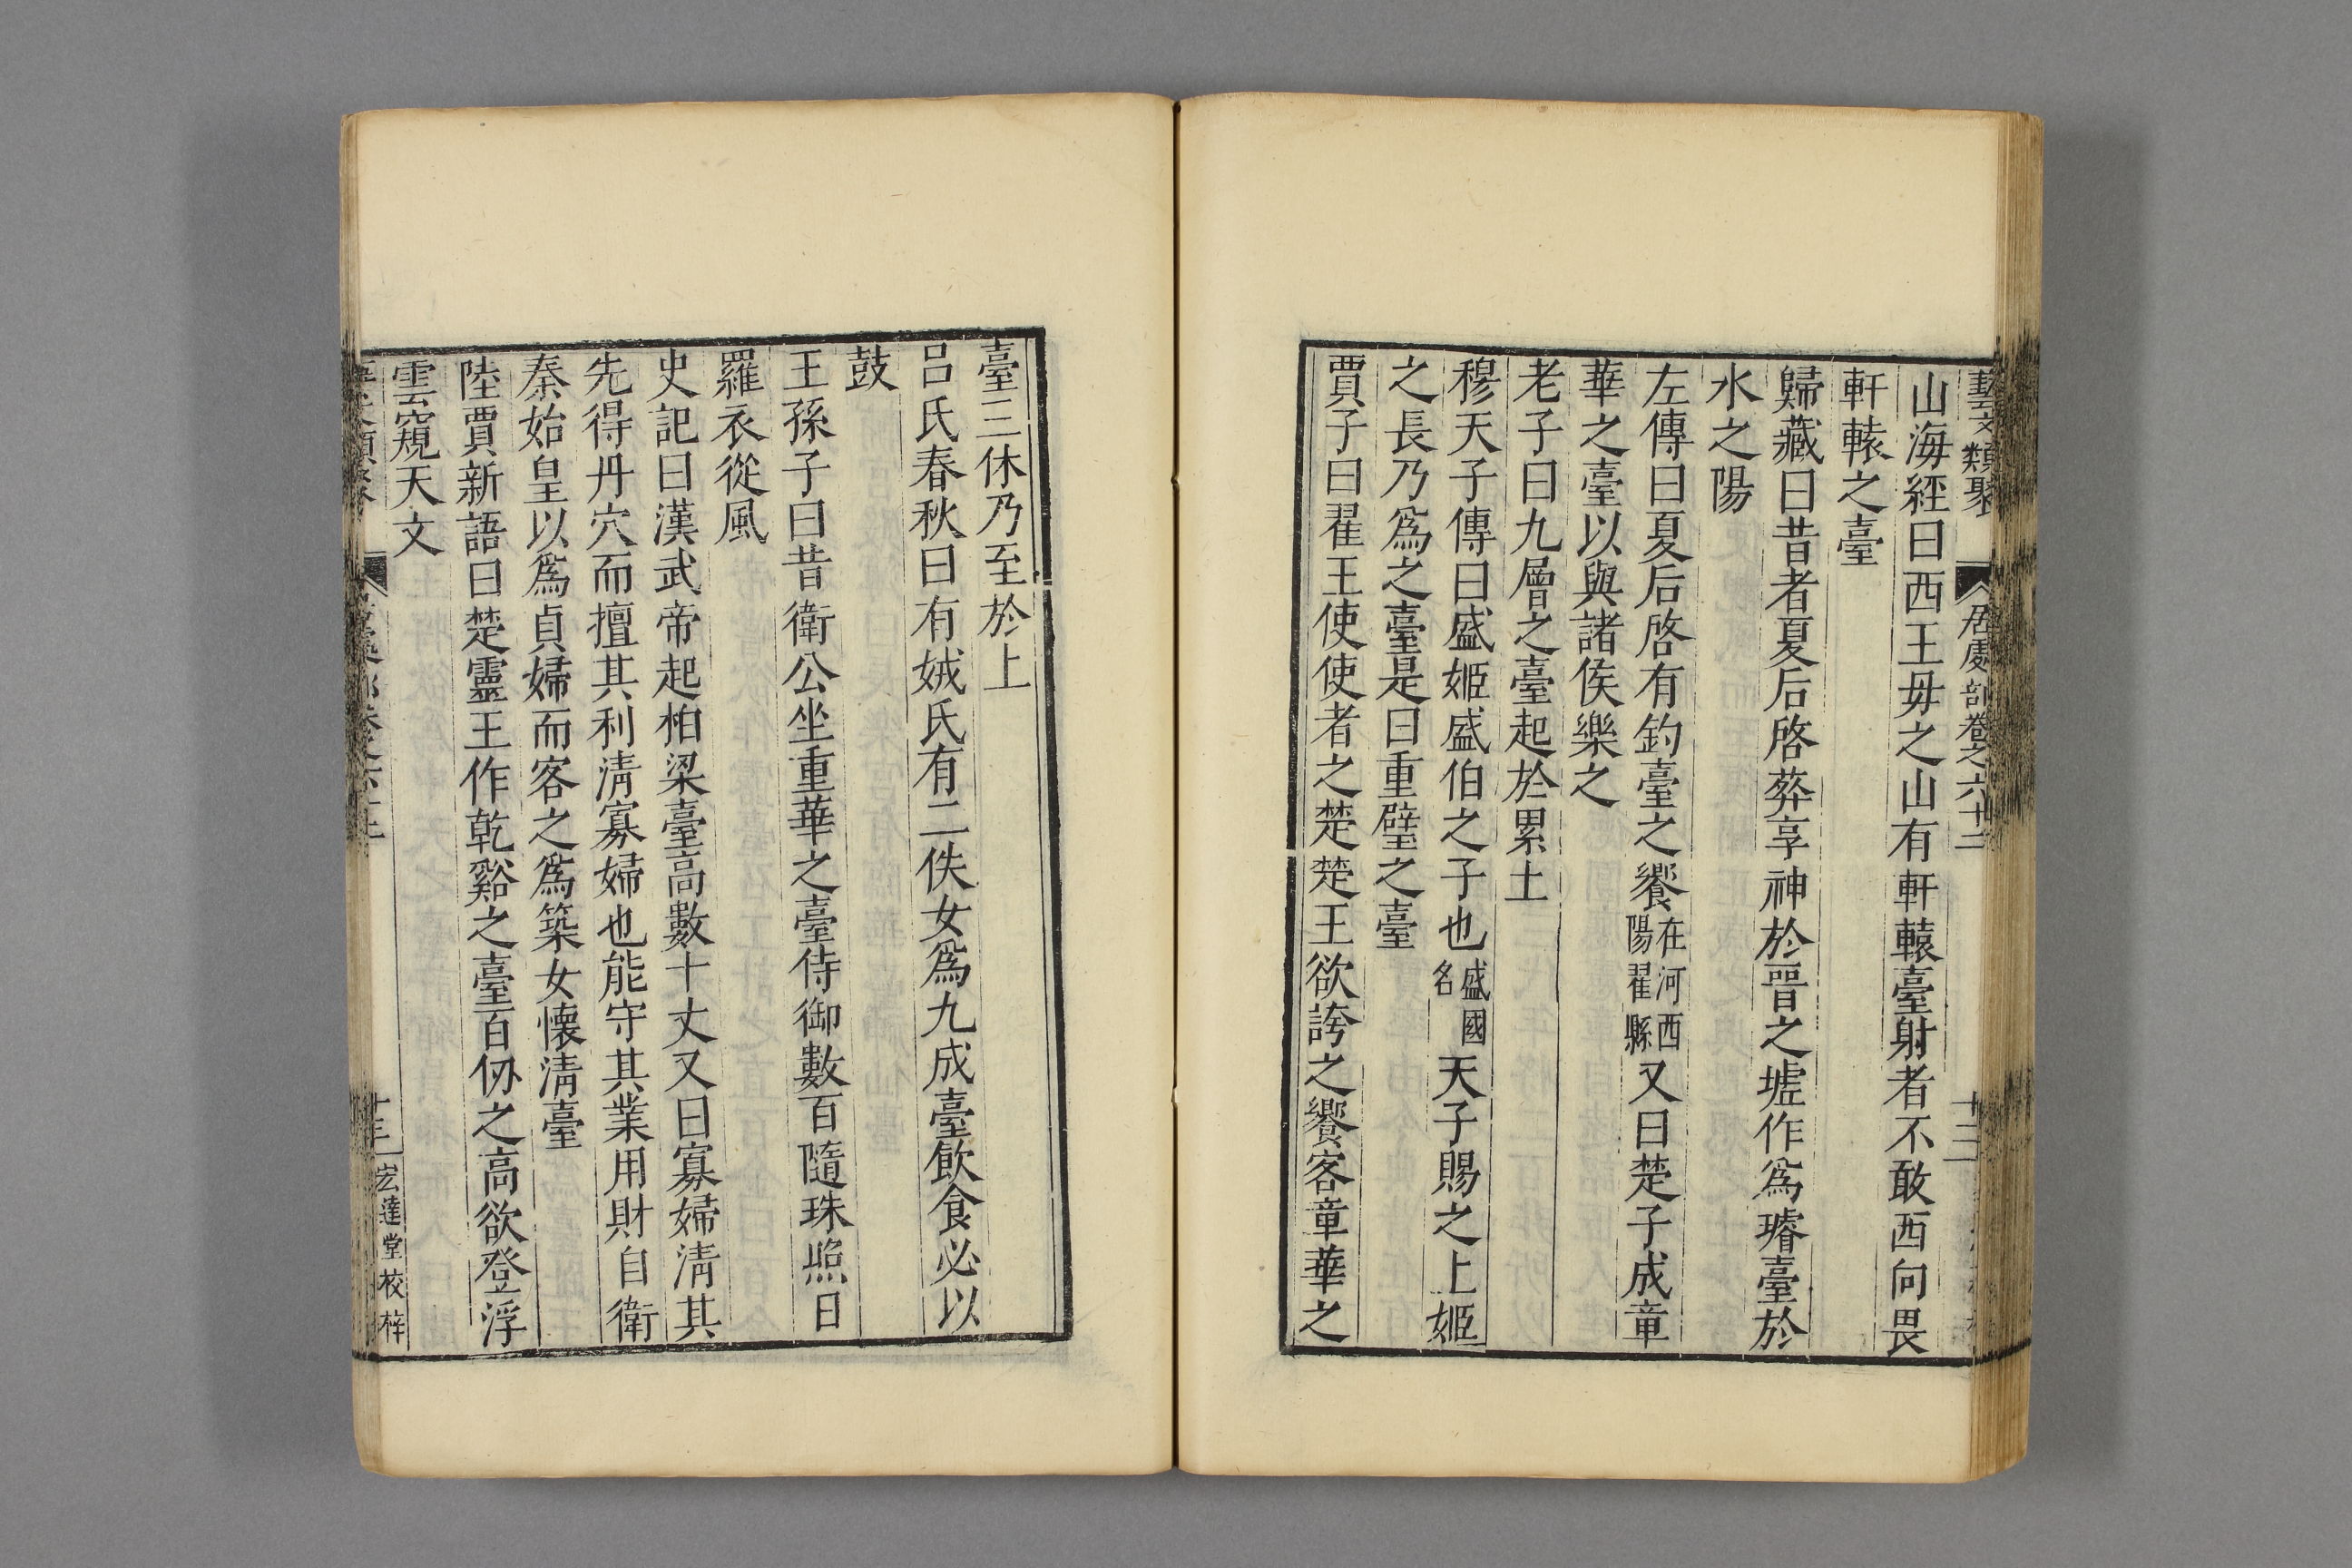 藝文類聚 居處部卷之六十二 十二
山海經曰西王母之山有軒轅臺射者不敢西向畏
軒轅之臺
歸藏曰昔者夏后啓葬享神於晉之墟作爲璿臺於
水之陽
左傳曰夏后啓有釣臺之饗在河西陽翟縣又曰楚子成章
華之臺以與諸侯樂之
老子曰九層之臺起於累土
穆天子傳曰盛姬盛伯之子也盛國名天子賜之上姬
之長乃爲之臺是曰重璧之臺
賈子曰翟王使使者之楚楚王欲誇之饗客章華之
臺三休乃至於上
呂氏春秋曰有娀氏有二佚女爲九成臺飲食必以
鼓
王孫子曰昔衛公坐重華之臺侍御數百隨珠照日
羅衣從風
史記曰漢武帝起柏梁臺高數十丈又曰寡婦淸其
先得丹穴而擅其利淸寡婦也能守其業用財自衛
秦始皇以爲貞婦而客之爲築女懷淸臺
陸賈新語曰楚靈王作乾谿之臺百仭之高欲登浮
雲窺天文
宏達堂校梓